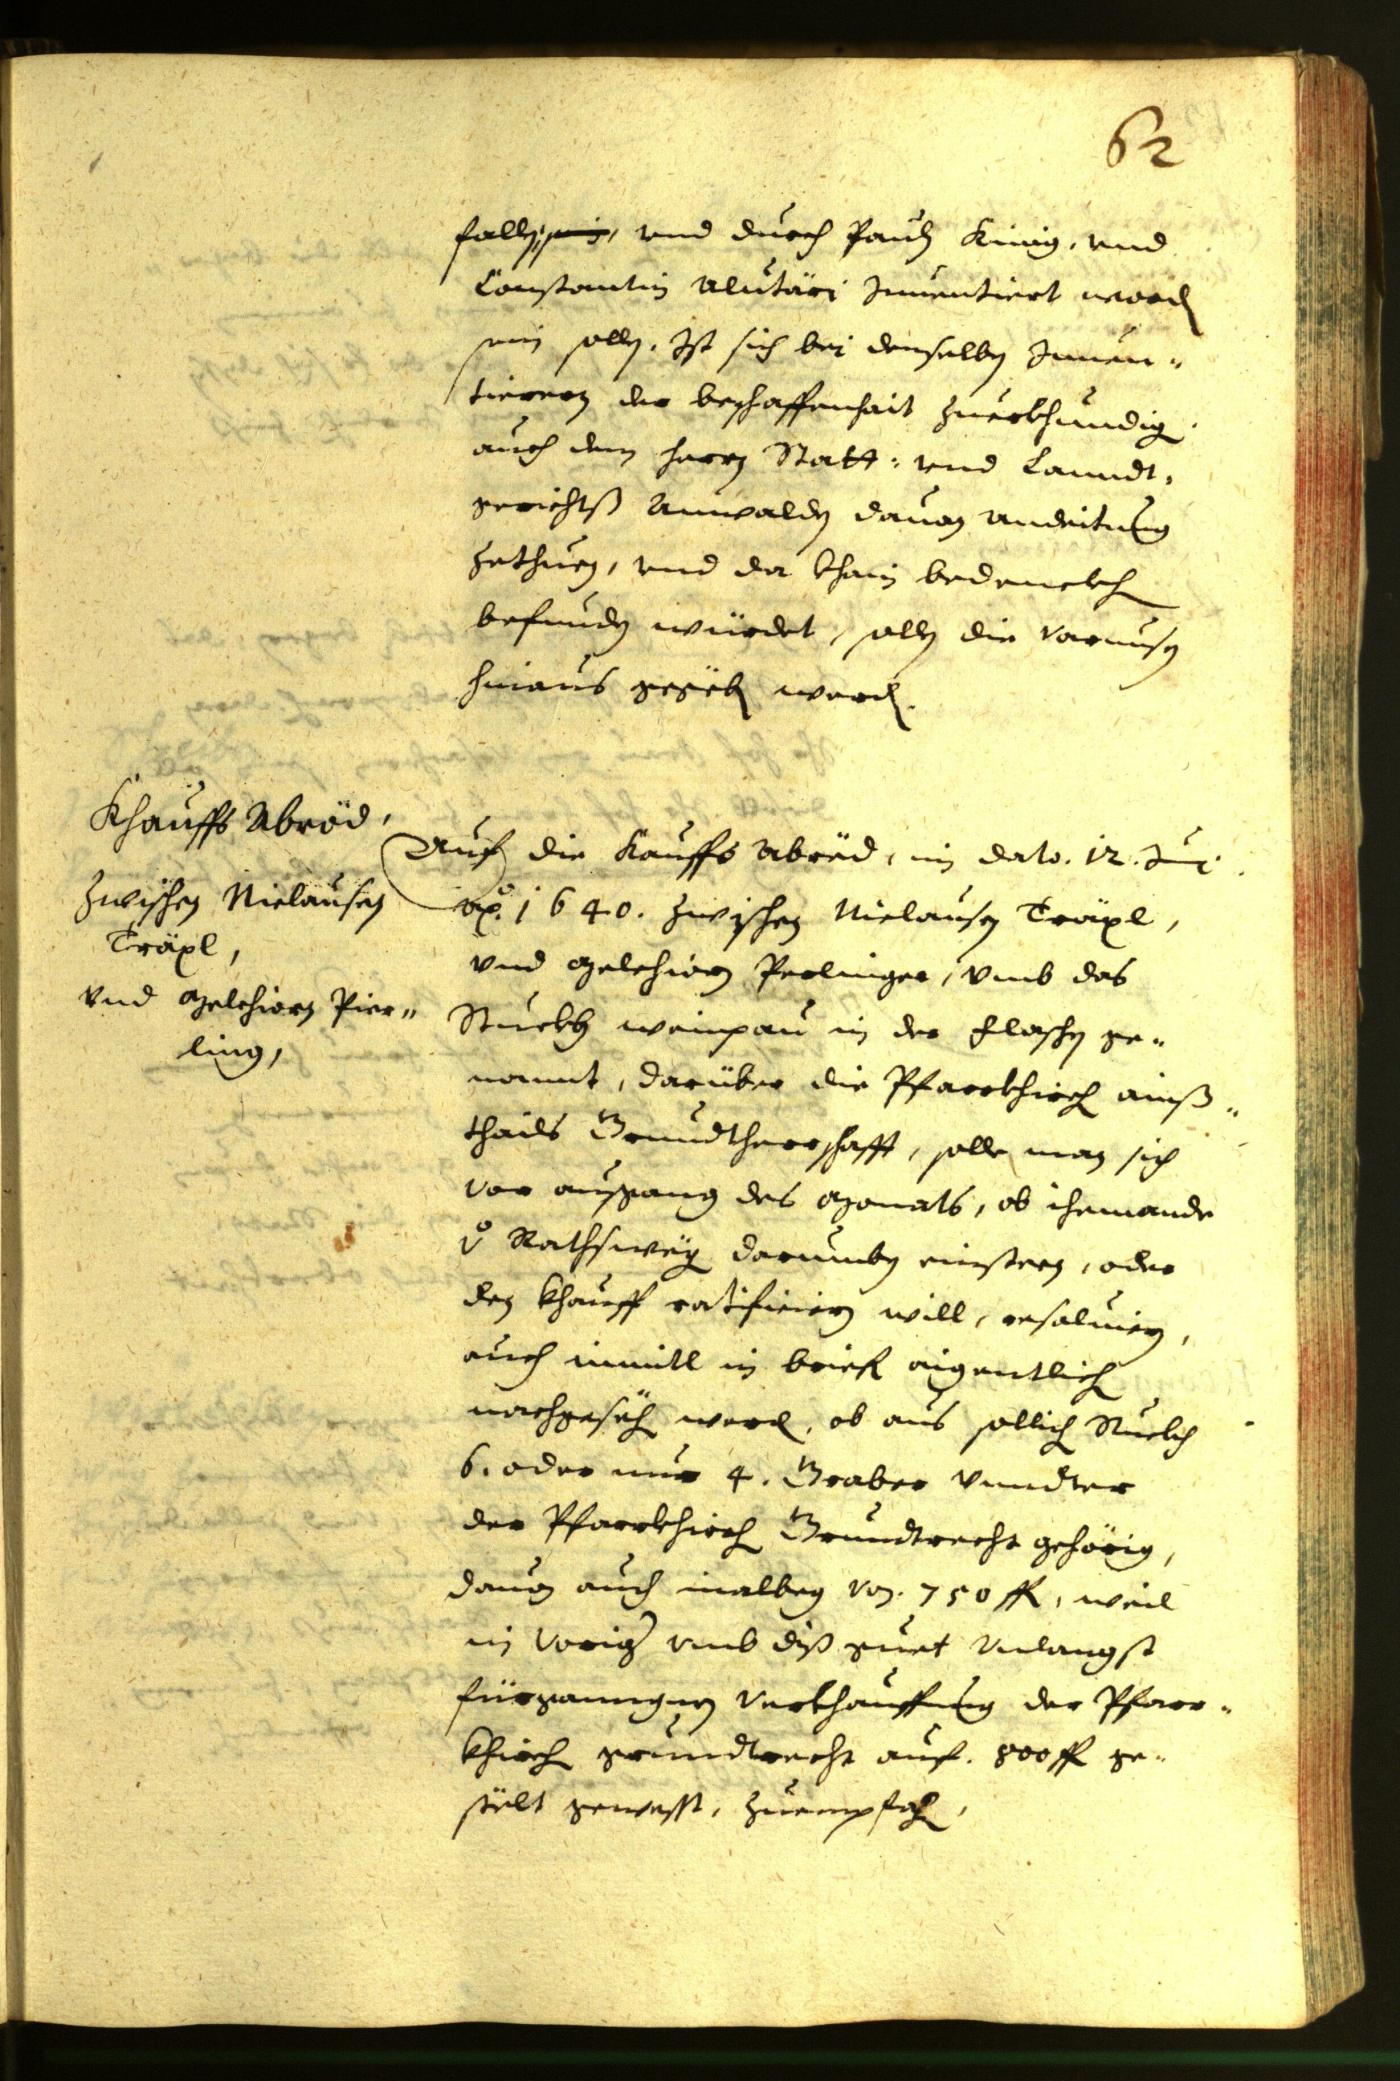 62
fallen, sein, vnd durch Paulj Künig, vnd
Constantin Alutärj Inuentiert word
sein sollen, Ist sich bei denselben Inuen-
tierern der beschaffenhait zuerkhundig
auch dem herrn Statt- vnd Lanndt-
gerichtß Anwalden dauon andeitung
zethuen, vnd da khain bedencken
befunden würdet, sollen die varnusen
hinaus gegeben werden.
Khauffs Abröd,
zwischen Niclausen
Träxl,
vnd Melchiorn Pier-
ling,
Auf die Kauffs Abröd, in dato. 12. Junj
ao. 1640. zwischen Niclausen Träxl,
vnd Melchiorn Perlinger, vmb das
Stuckh weinpau in der Flaschen ge-
nannt, darüber die Pfarrkhirch ainß-
thails Grundtherrschafft, solle man sich
vor ausgang des Monats, ob iemande
Rathsweg darumben einsteen, oder
den Khauff ratificiern will, resoluiern,
auch inmitl in brief aigentlich
nachgesehen werden, ob aus sollich Stuckh
6. oder nur 4. Graber vnndter
der Pfarrkhirch Grundtrecht gehörig,
dauon auch inalbeg von 750 fl, weil
in voriger vmb diß guet vnlangst
fürganngnen verkhauffung der Pfarr-
khirch grundtrecht auf. 800 fl ge-
stelt gewesst, zuempfah,